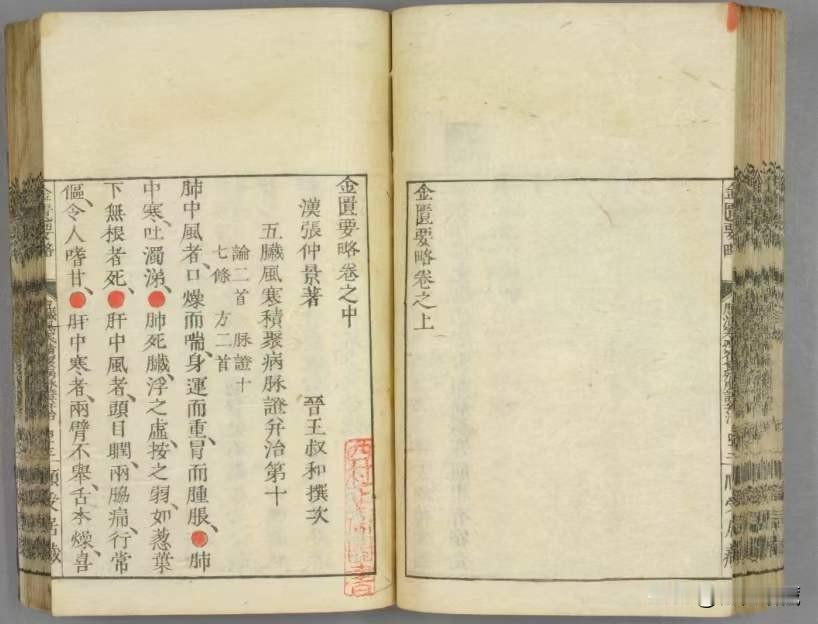 金匱要略卷之上
金匱要略卷之中
漢張仲景著 晉王叔和撰次
五臟風寒積聚病脉證并治第十
論二首 脉證十
七條 方二首
肺中風者、口燥而喘、身運而重、冒而腫脹、●肺
中寒、吐濁涕、●肺死臟、浮之虛、按之弱、如葱葉
下無根者死、●肝中風者、頭目瞤、兩脇痛、行常
傴、令人嗜甘、●肝中寒者、兩臂不舉、舌本燥、喜
金匱要略